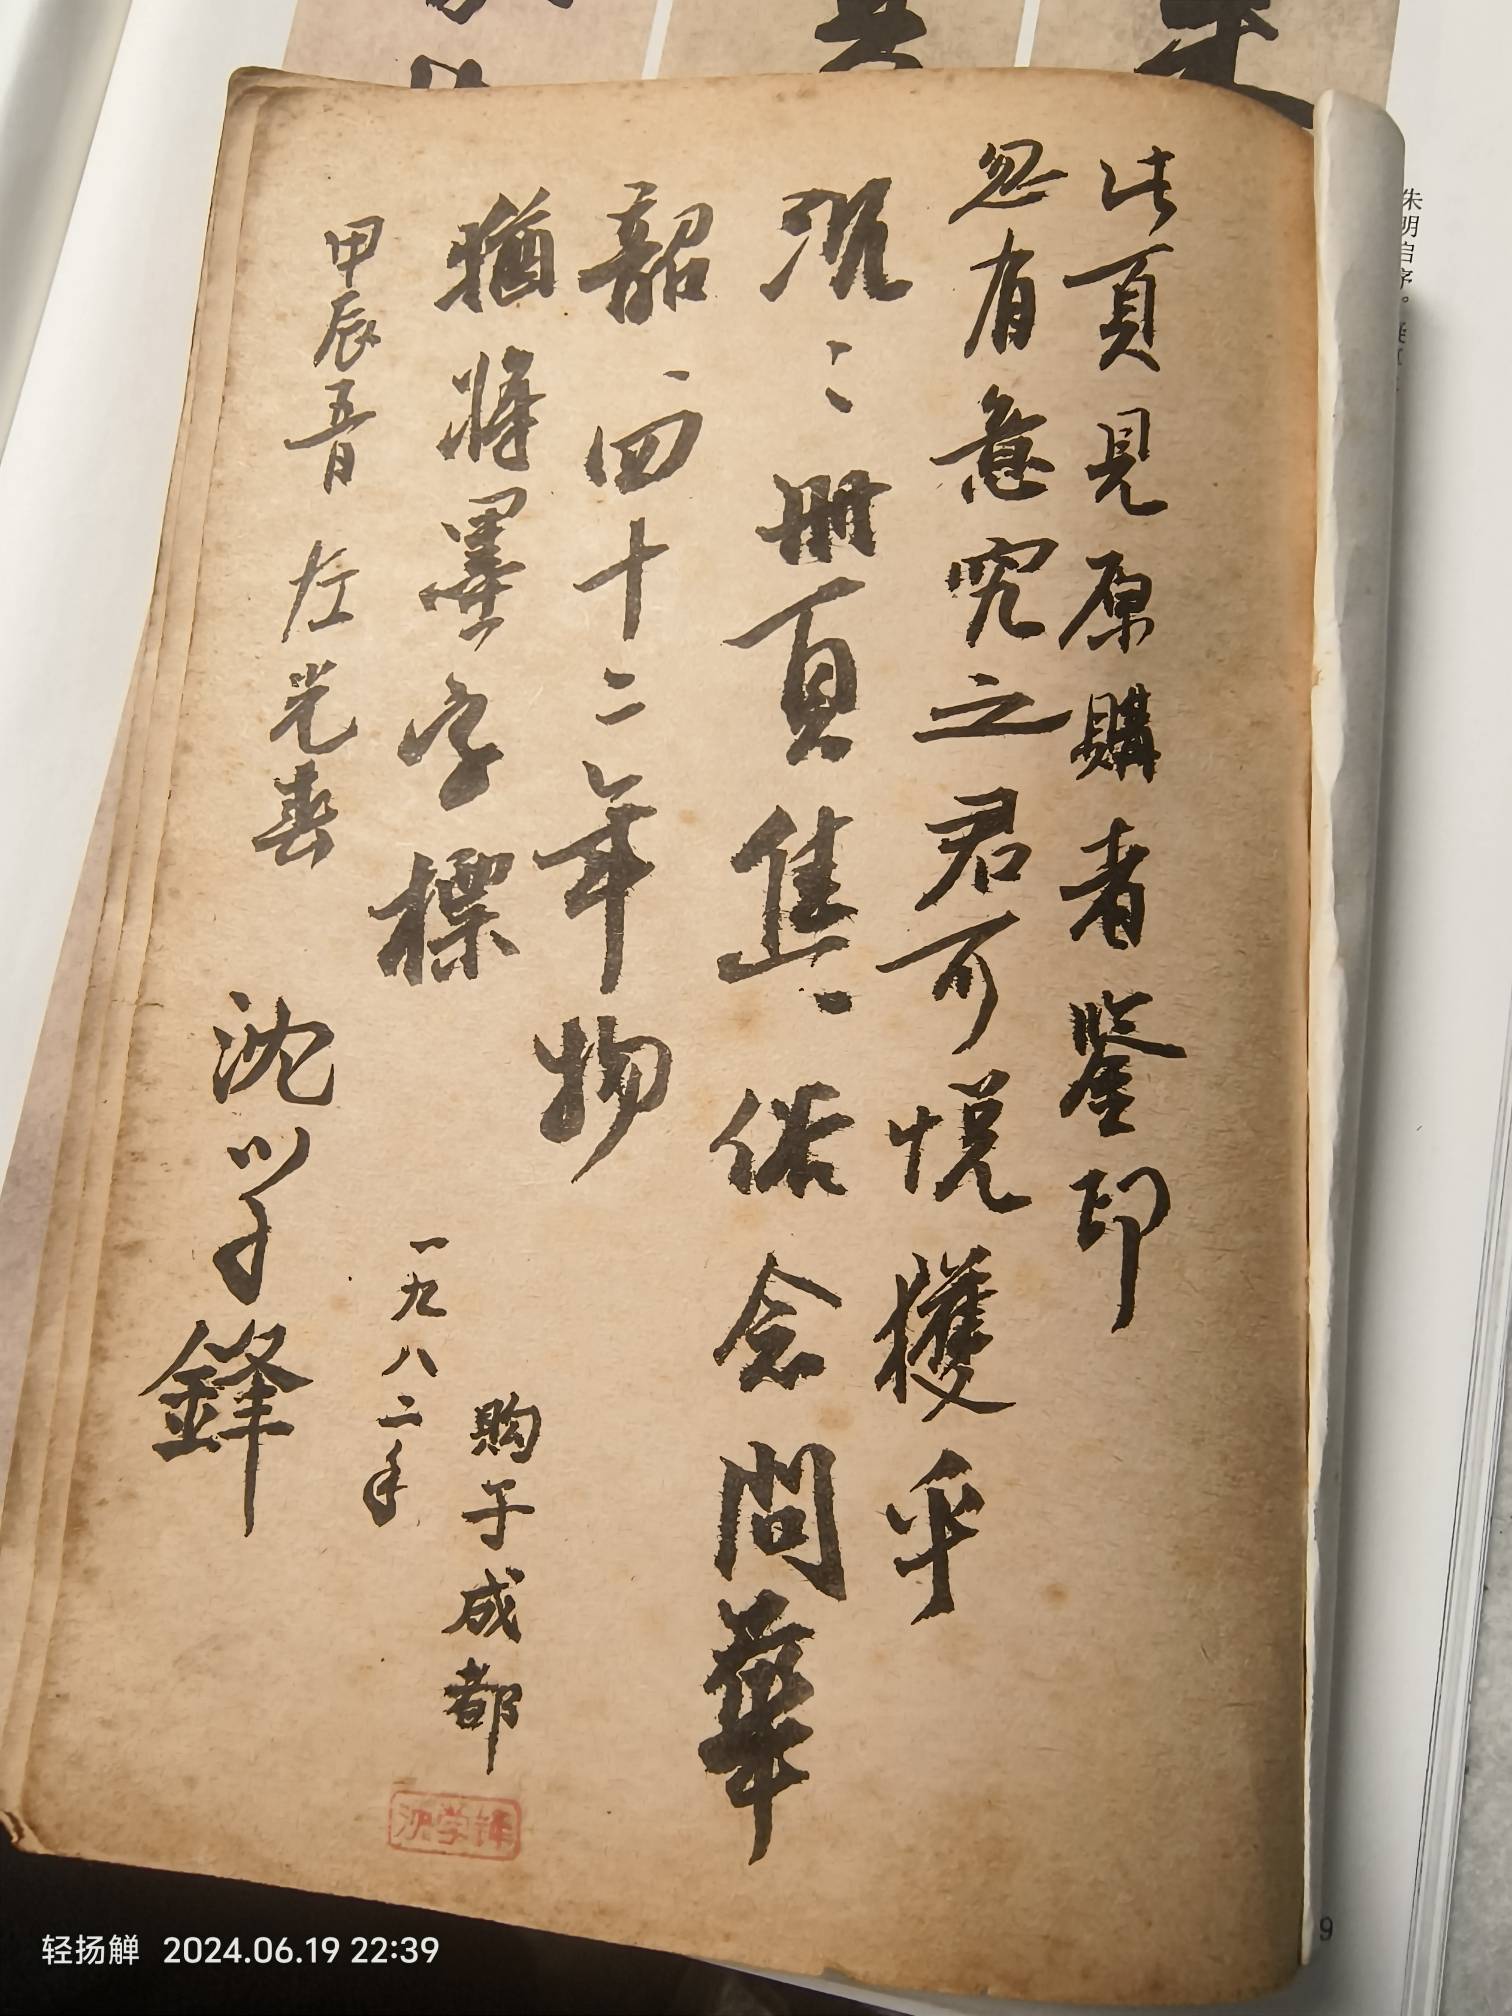 此頁見原購者鉴印
忽有意究之君可悦獲乎
沉〻册頁焦〻俗念問華
韶、四十二年物
猶將墨字標
甲辰五月 左光春
沈学鋒
购于成都
一九八二年
沈学锋
朱明自序。
轻扬觯 2024.06.19 22:39
9